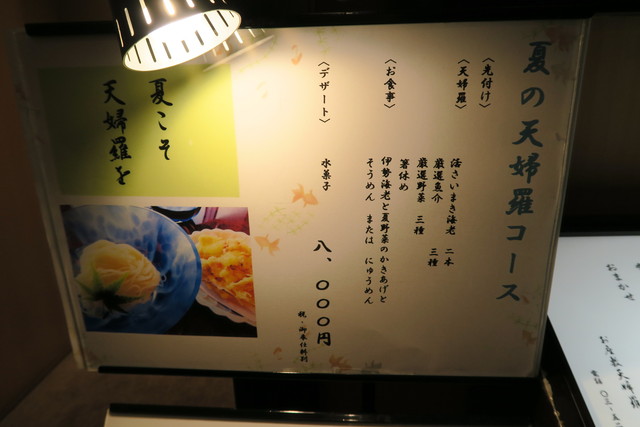 夏の天婦羅コース
〈先付け〉
〈天婦羅〉
活さいまき海老 二本
厳選魚介 三種
厳選野菜 三種
箸休め
〈お食事〉
伊勢海老と夏野菜のかきあげと
そうめん または にゅうめん
〈デザート〉
水菓子
八、〇〇〇円
税・御奉仕料別
夏こそ
天婦羅を
おまかせ
お座敷天婦羅